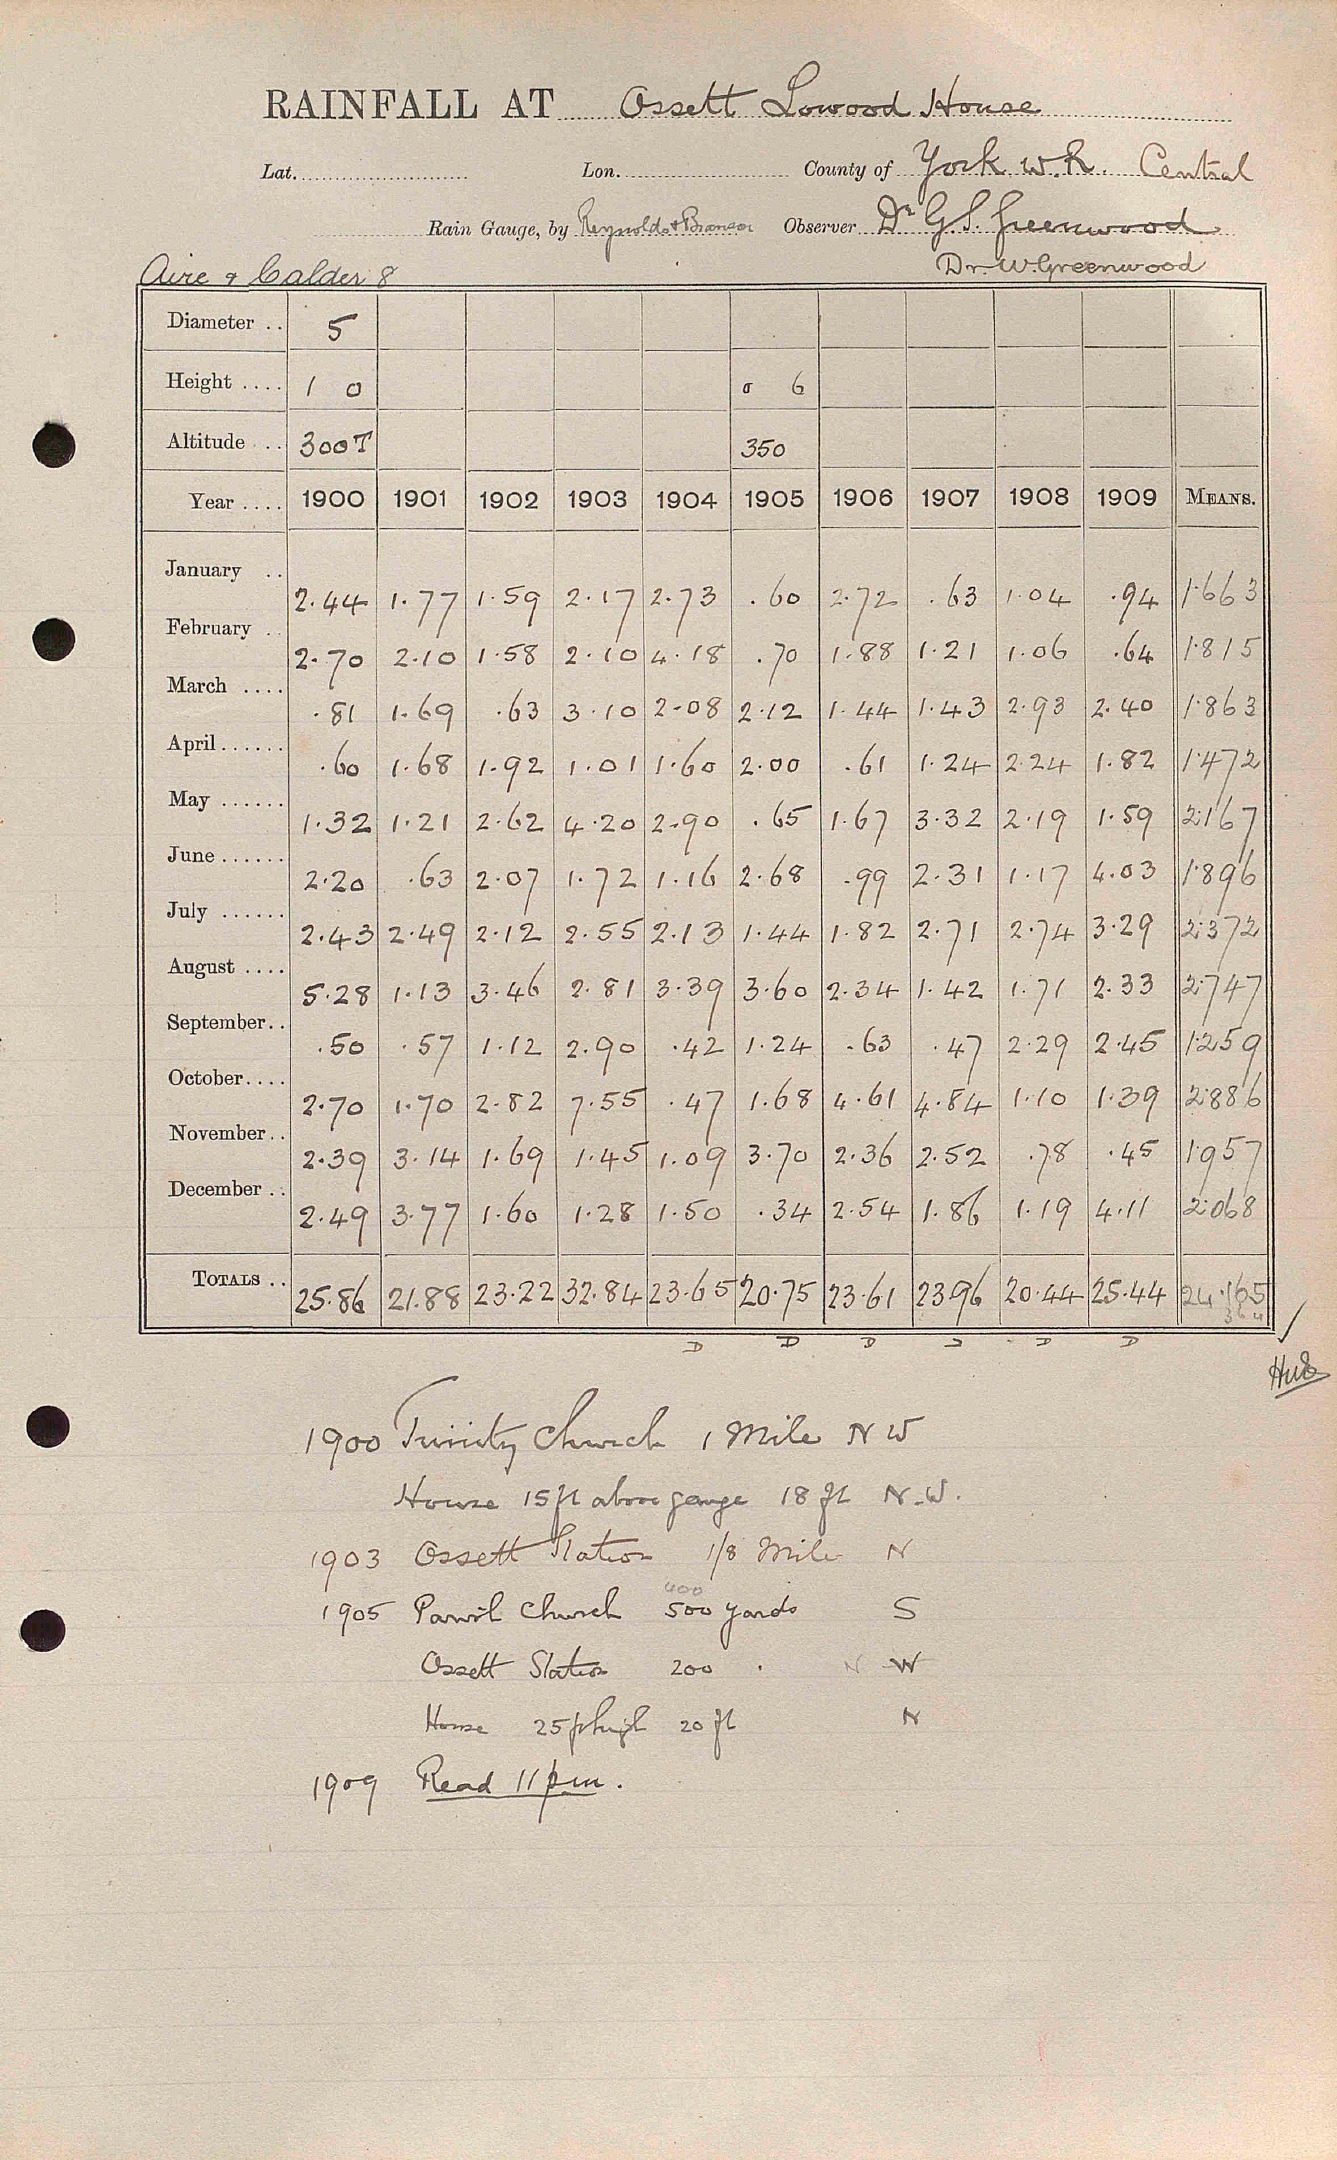 RAINFALL AT Ossett Lowood House
Lat. Lon. County of York W.R. Central
Rain Gauge, by Reynolds & Branson Observer Dr G.S. Greenwood
Aire & Calder 8 Dr. W. Greenwood
Diameter .. 5
Height .... 1 0 0 6
Altitude ... 300T 350
Year .... 1900 1901 1902 1903 1904 1905 1906 1907 1908 1909 MEANS.
January .. 2.44 1.77 1.59 2.17 2.73 .60 2.72 .63 1.04 .94 1.663
February .. 2.70 2.10 1.58 2.10 4.18 .70 1.88 1.21 1.06 .64 1.815
March .... .81 1.69 .63 3.10 2.08 2.12 1.44 1.43 2.93 2.40 1.863
April ...... .60 1.68 1.92 1.01 1.60 2.00 .61 1.24 2.24 1.82 1.472
May ...... 1.32 1.21 2.62 4.20 2.90 .65 1.67 3.32 2.19 1.59 2.167
June ...... 2.20 .63 2.07 1.72 1.16 2.68 .99 2.31 1.17 4.03 1.896
July ...... 2.43 2.49 2.12 2.55 2.13 1.44 1.82 2.71 2.74 3.29 2.372
August .... 5.28 1.13 3.46 2.81 3.39 3.60 2.34 1.42 1.71 2.33 2.747
September .. .50 .57 1.12 2.90 .42 1.24 .63 .47 2.29 2.45 1.259
October .... 2.70 1.70 2.82 7.55 .47 1.68 4.61 4.84 1.10 1.39 2.886
November .. 2.39 3.14 1.69 1.45 1.09 3.70 2.36 2.52 .78 .45 1.957
December .. 2.49 3.77 1.60 1.28 1.50 .34 2.54 1.86 1.19 4.11 2.068
TOTALS .. 25.86 21.88 23.22 32.84 23.65 20.75 23.61 23.96 20.44 25.44 24.165
D D D D D D
1900 Trinity Church 1 Mile N W
House 15 ft above gauge 18 ft N.W.
1903 Ossett Station 1/8 Mile N
400
1905 Parish Church 500 yards S
Ossett Station 200 . N W
House 25 ft high 20 ft N
1909 Read 11 pm.